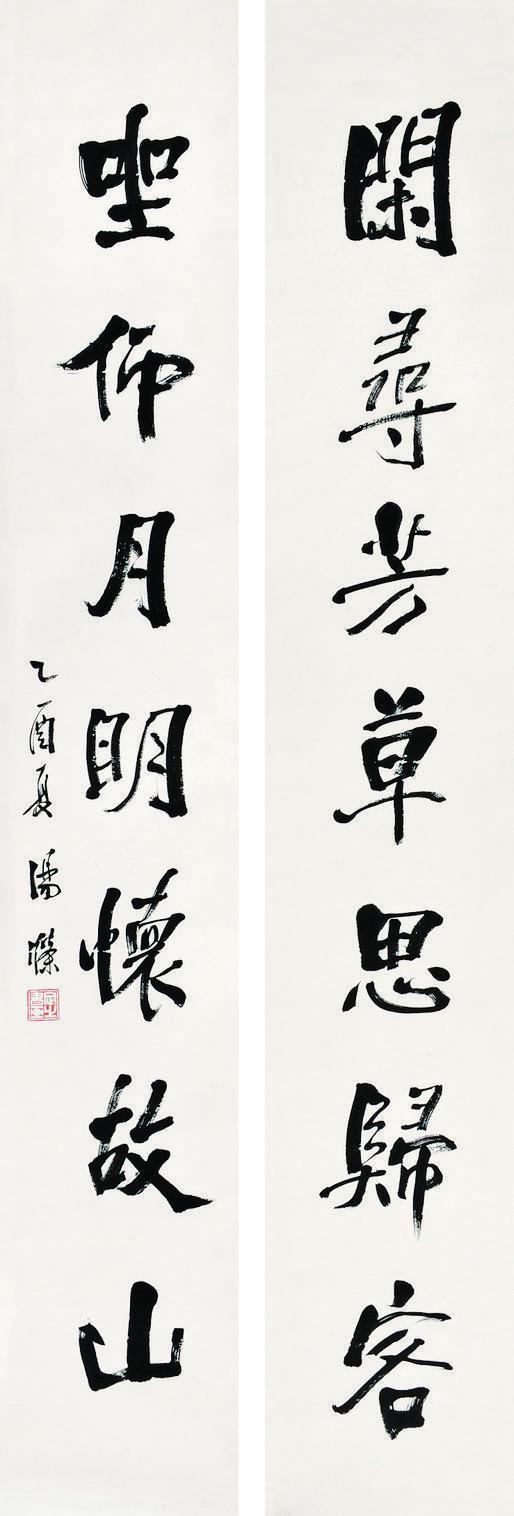 閑尋芳草思歸客
聖仰月明懷故山
乙酉夏湯